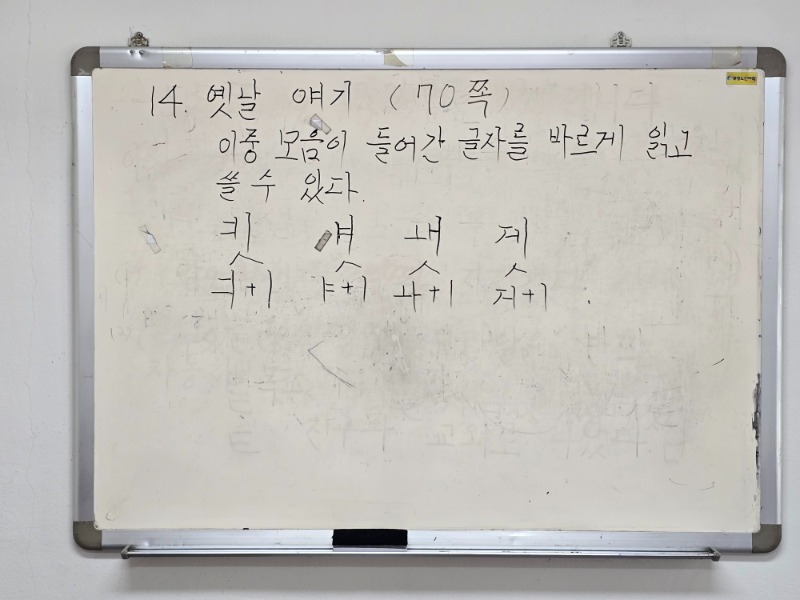 14. 옛날 얘기 (70쪽)
이중 모음이 들어간 글자를 바르게 읽고
쓸 수 있다.
ㅖ ㅒ ㅙ ㅞ
ㅕ+ㅣ ㅑ+ㅣ ㅘ+ㅣ ㅝ+ㅣ